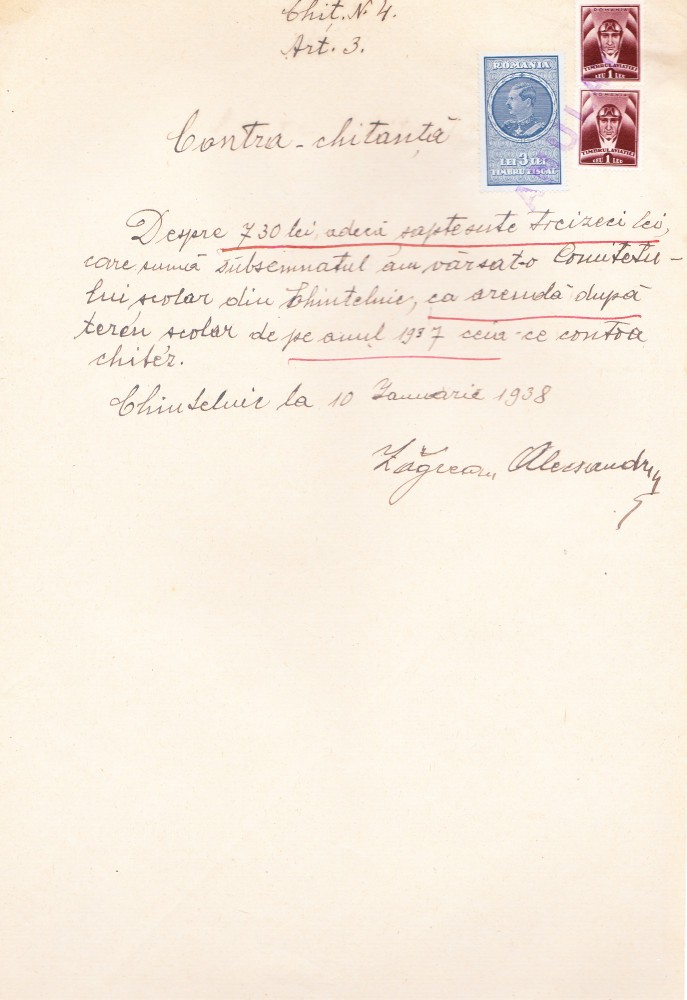 Chit. Nr. 4.
Art. 3.
ROMANIA
LEI 3 LEI
TIMBRU FISCAL
ROMANIA
TIMBRUL AVIAȚIEI
LEU 1 LEU
TIMBRUL AVIAȚIEI
LEU 1 LEU
Contra-chitanță
Despre 730 lei, adecă șaptesute treizeci lei,
care sumă subsemnatul am vărsat-o Comitetu-
lui școlar din Chintelnic, ca arendă după
terén școlar de pe anul 1937 ceia-ce contra
chitéz.
Chintelnic la 10 Ianuarie 1938
Zăgrean Alecsandru